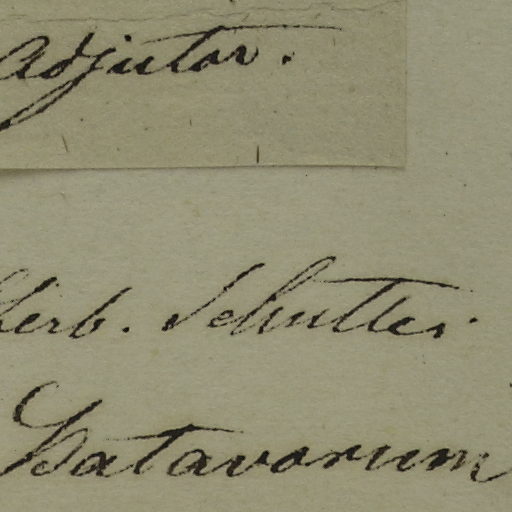 Adjutor.
Herb. Schultes.
Batavorum